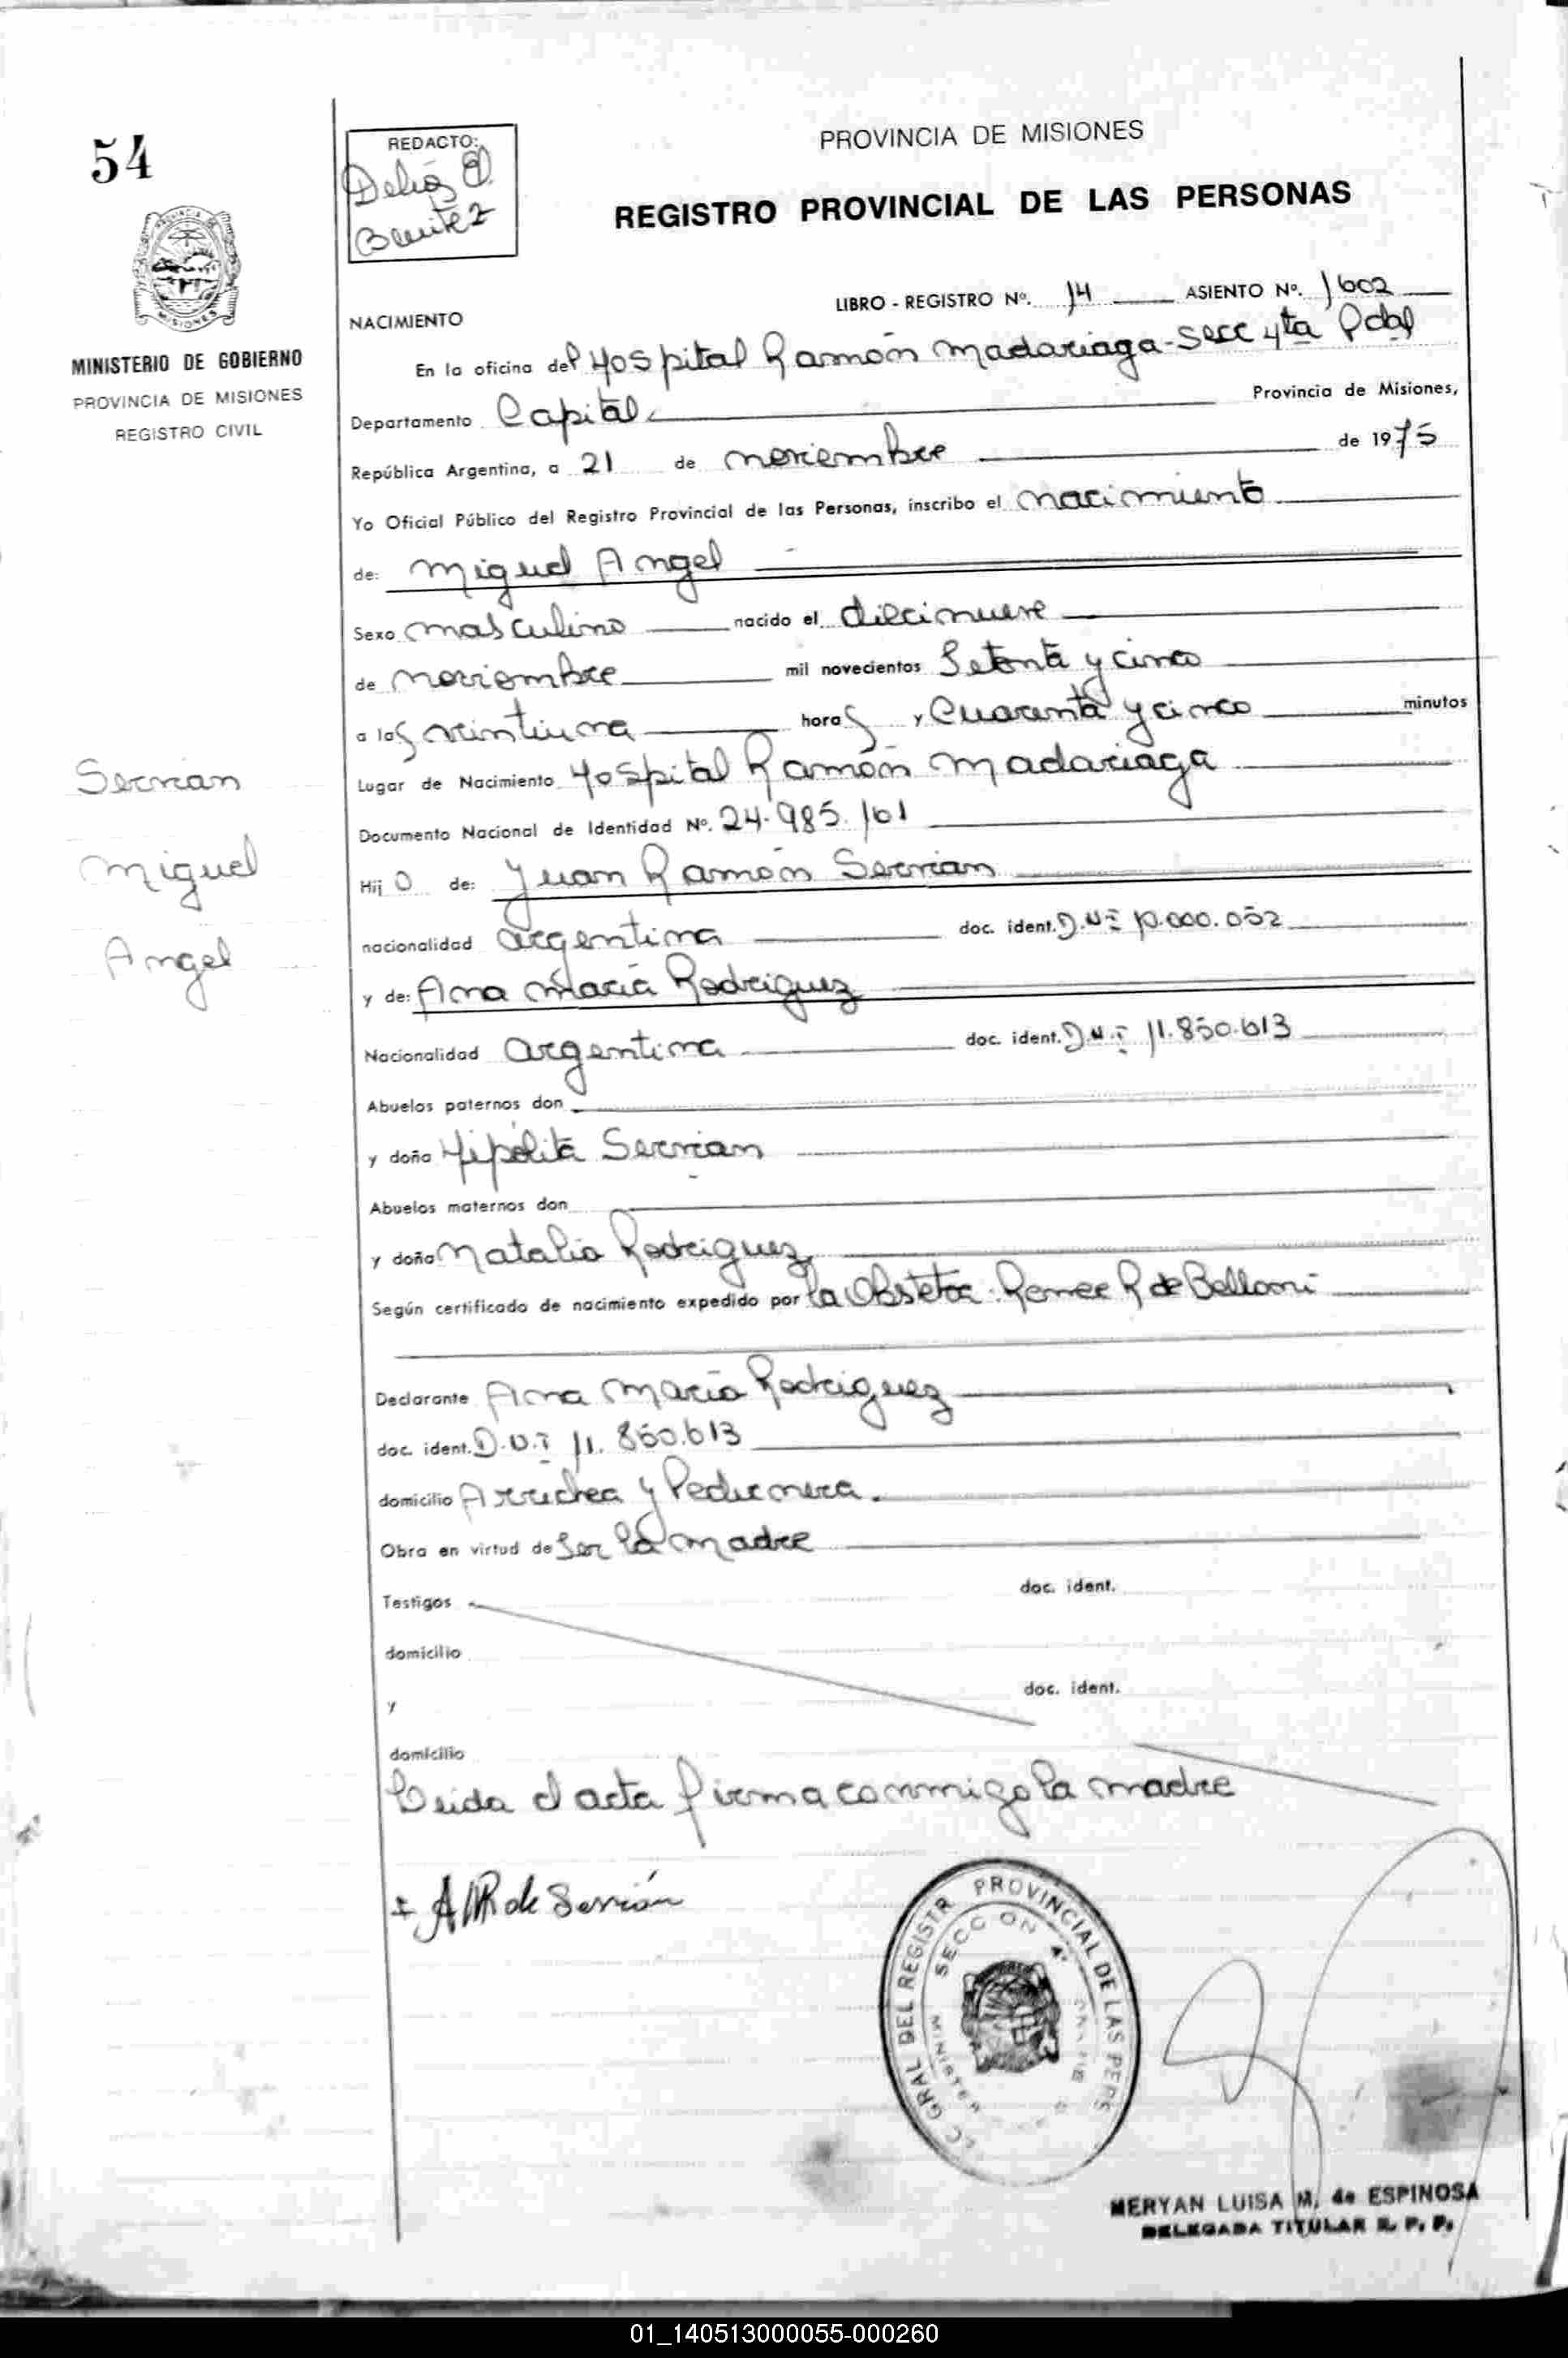 54
MINISTERIO DE GOBIERNO
PROVINCIA DE MISIONES
REGISTRO CIVIL
Servian
Miguel
Angel
REDACTO:
Delia
Benitez
PROVINCIA DE MISIONES
REGISTRO PROVINCIAL DE LAS PERSONAS
LIBRO - REGISTRO Nº. 14 ASIENTO Nº. 1602
NACIMIENTO
En la oficina del Hospital Ramón Madariaga - Secc 4ta Pdal
Departamento Capital Provincia de Misiones,
República Argentina, a 21 de noviembre de 1975
Yo Oficial Público del Registro Provincial de las Personas, inscribo el nacimiento
de: Miguel Angel
Sexo masculino nacido el diecinueve
de noviembre mil novecientos Setenta y cinco
a las veintiuna horas y Cuarenta y cinco minutos
Lugar de Nacimiento Hospital Ramón Madariaga
Documento Nacional de Identidad Nº. 24.985.161
Hijo de: Juan Ramón Servian
nacionalidad argentina doc. ident. D.N.I 10.000.052
y de: Ana María Rodriguez
Nacionalidad argentina doc. ident. D.N.I 11.850.613
Abuelos paternos don
y doña Hipólita Servian
Abuelos maternos don
y doña Natalia Rodriguez
Según certificado de nacimiento expedido por la Obstetra. Renee R de Belloni
Declarante Ana María Rodriguez
doc. ident. D.N.I 11.850.613
domicilio Arrechea y Pedernera.
Obra en virtud de Ser la madre
Testigos doc. ident.
domicilio
y doc. ident.
domicilio
Leida el acta firma conmigo la madre
AMR de Servián
GRAL DEL REGISTR PROVINCIAL DE LAS PERS
SECCION 4ª
MERYAN LUISA M. de ESPINOSA
DELEGADA TITULAR R. P. P.
01_140513000055-000260